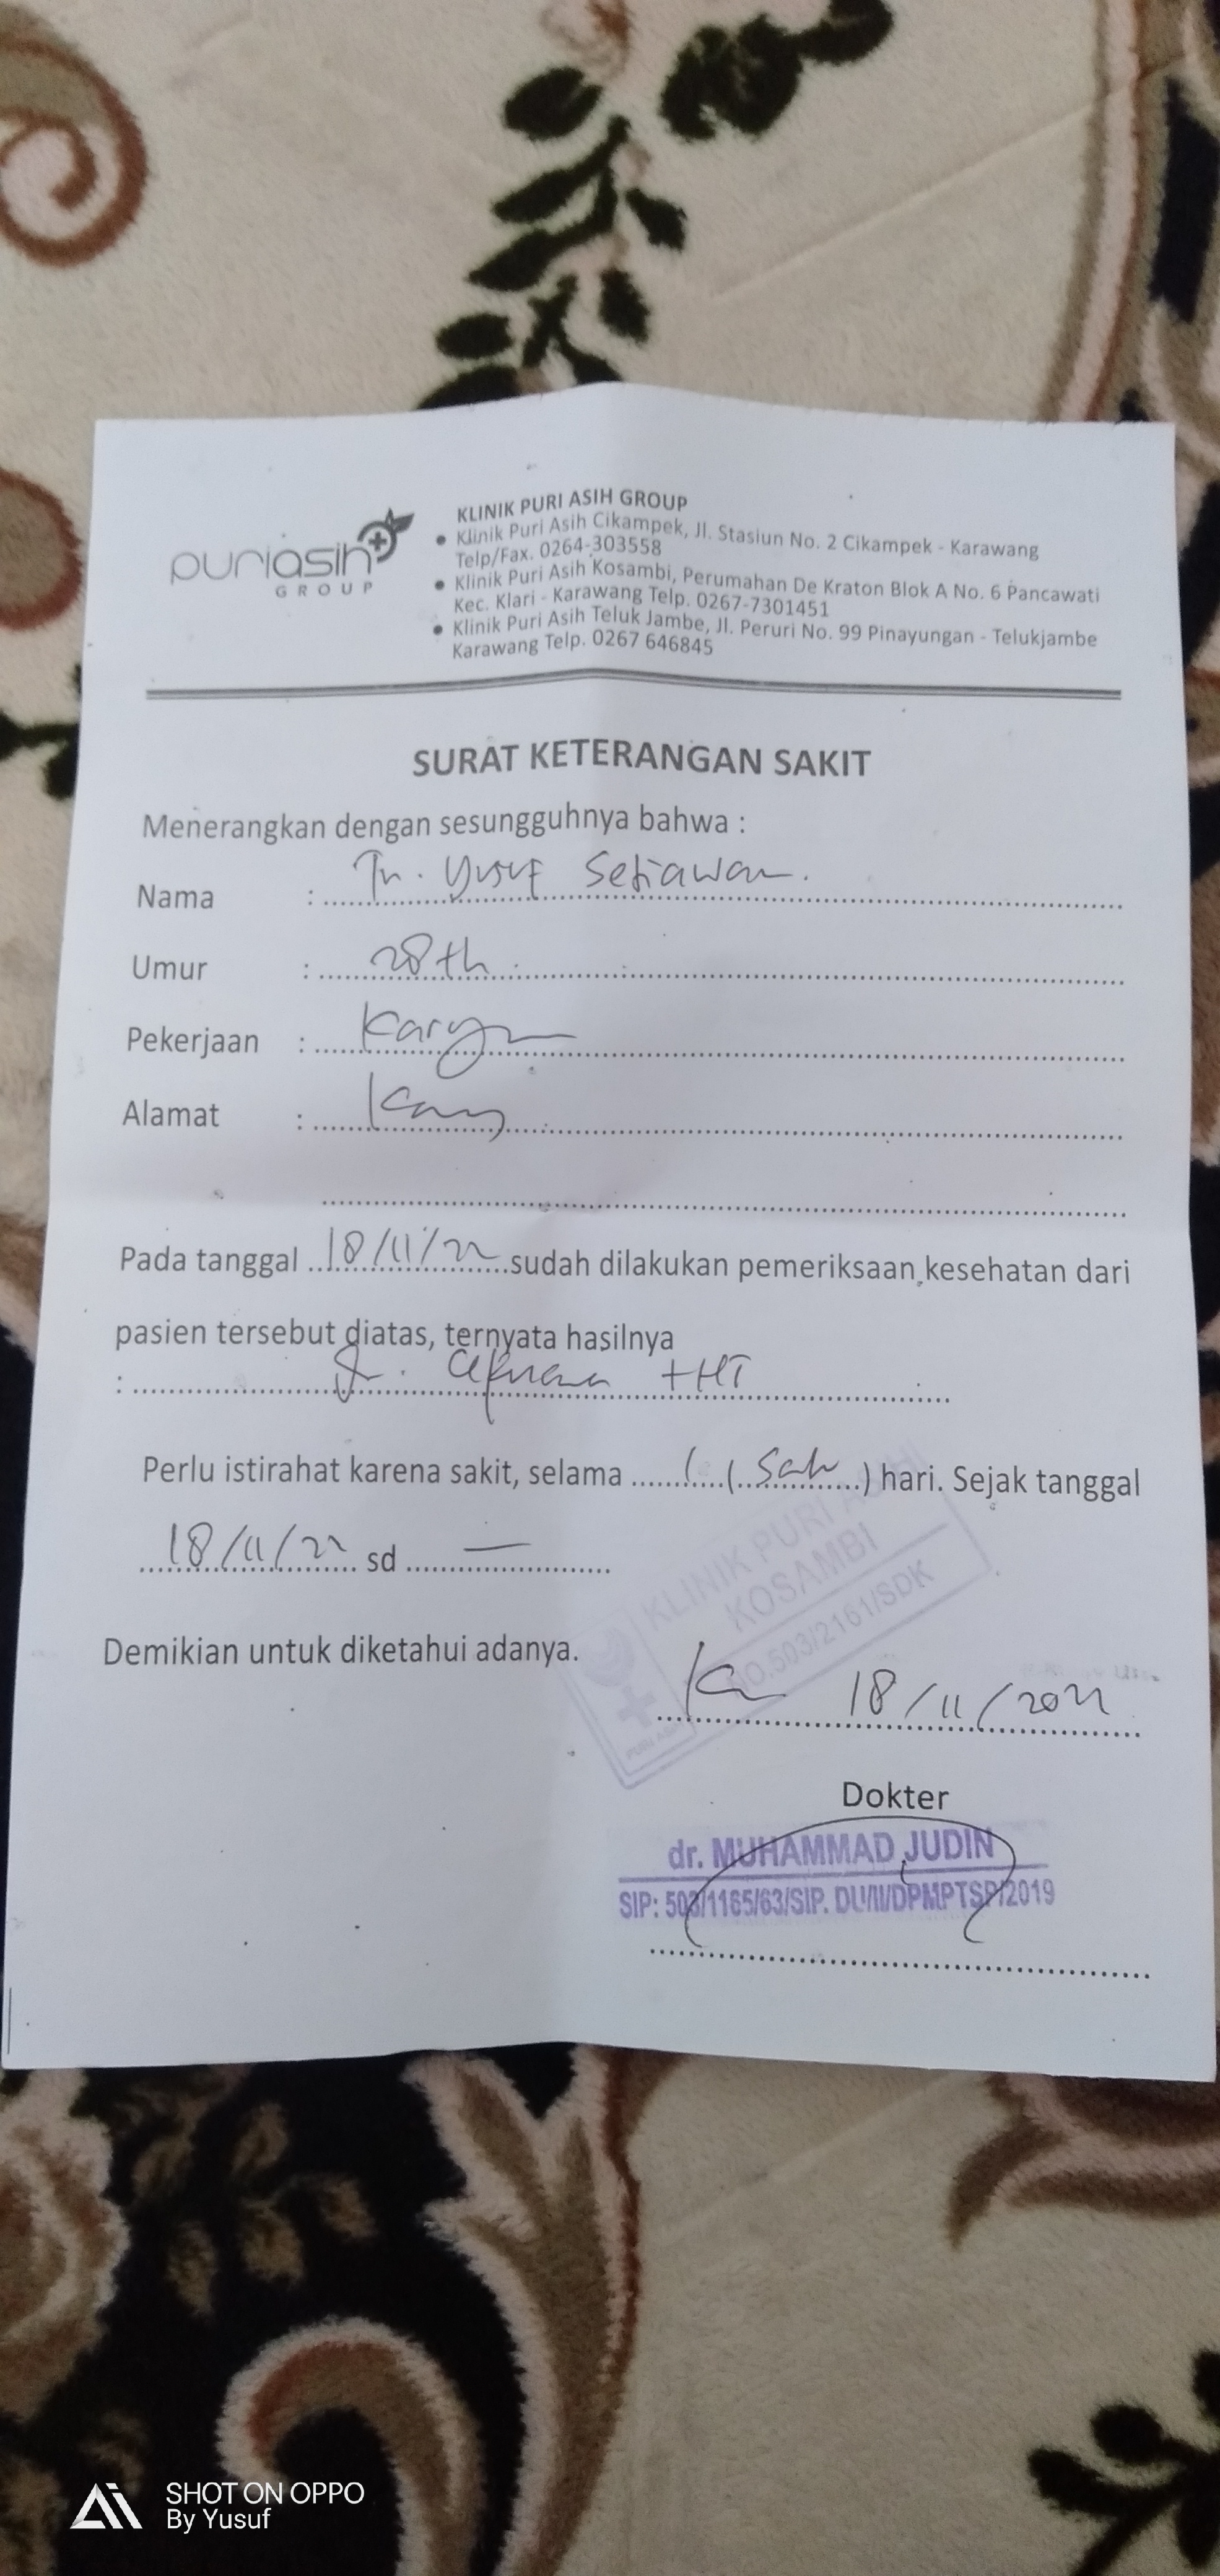 puriasih
GROUP
KLINIK PURI ASIH GROUP
• Klinik Puri Asih Cikampek, Jl. Stasiun No. 2 Cikampek - Karawang
Telp/Fax. 0264-303558
• Klinik Puri Asih Kosambi, Perumahan De Kraton Blok A No. 6 Pancawati
Kec. Klari - Karawang Telp. 0267-7301451
• Klinik Puri Asih Teluk Jambe, Jl. Peruri No. 99 Pinayungan - Telukjambe
Karawang Telp. 0267 646845
SURAT KETERANGAN SAKIT
Menerangkan dengan sesungguhnya bahwa :
Nama : Tn. Yusuf Setiawan.
Umur : 28 th
Pekerjaan :
Alamat :
Pada tanggal 18/11/22 sudah dilakukan pemeriksaan kesehatan dari
pasien tersebut diatas, ternyata hasilnya
: + HT
Perlu istirahat karena sakit, selama 1 (Satu) hari. Sejak tanggal
18/11/22 sd —
KLINIK PURI ASIH
KOSAMBI
NO.503/2161/SDK
PURI ASIH
Demikian untuk diketahui adanya.
18/11/2022
Dokter
dr. MUHAMMAD JUDIN
SIP: 503/1165/63/SIP. DU/II/DPMPTSP/2019
SHOT ON OPPO
By Yusuf